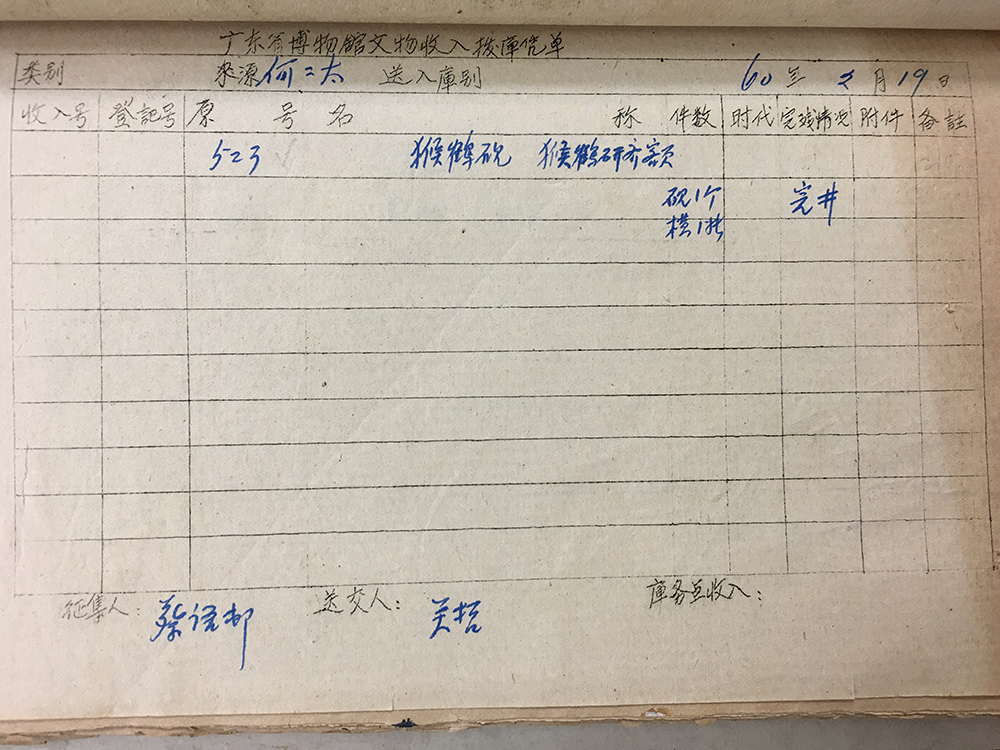 广东省博物館文物收入拨庫凭单
类别 來源 何二太 送入庫别 60年2月19日
收入号 登記号 原号 名称 件数 时代 完残情况 附件 备註
523 猴鶴砚 猴鶴研斋額
砚1个 完
横1
征集人: 蔡语邨 送交人: 关哲 庫务点收入: